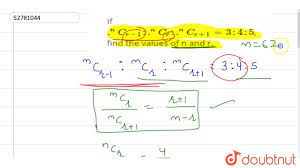 52781044
If
." C_{r−1} : " C_r : " C_{r+1} = 3:4:5,
find the values of n and r.
n=62
^nC_{r-1} : ^nC_r : ^nC_{r+1} = 3:4:5
^nC_r / ^nC_{r+1} = r+1 / n-r ✓
^nC_r = 4
doubtnut